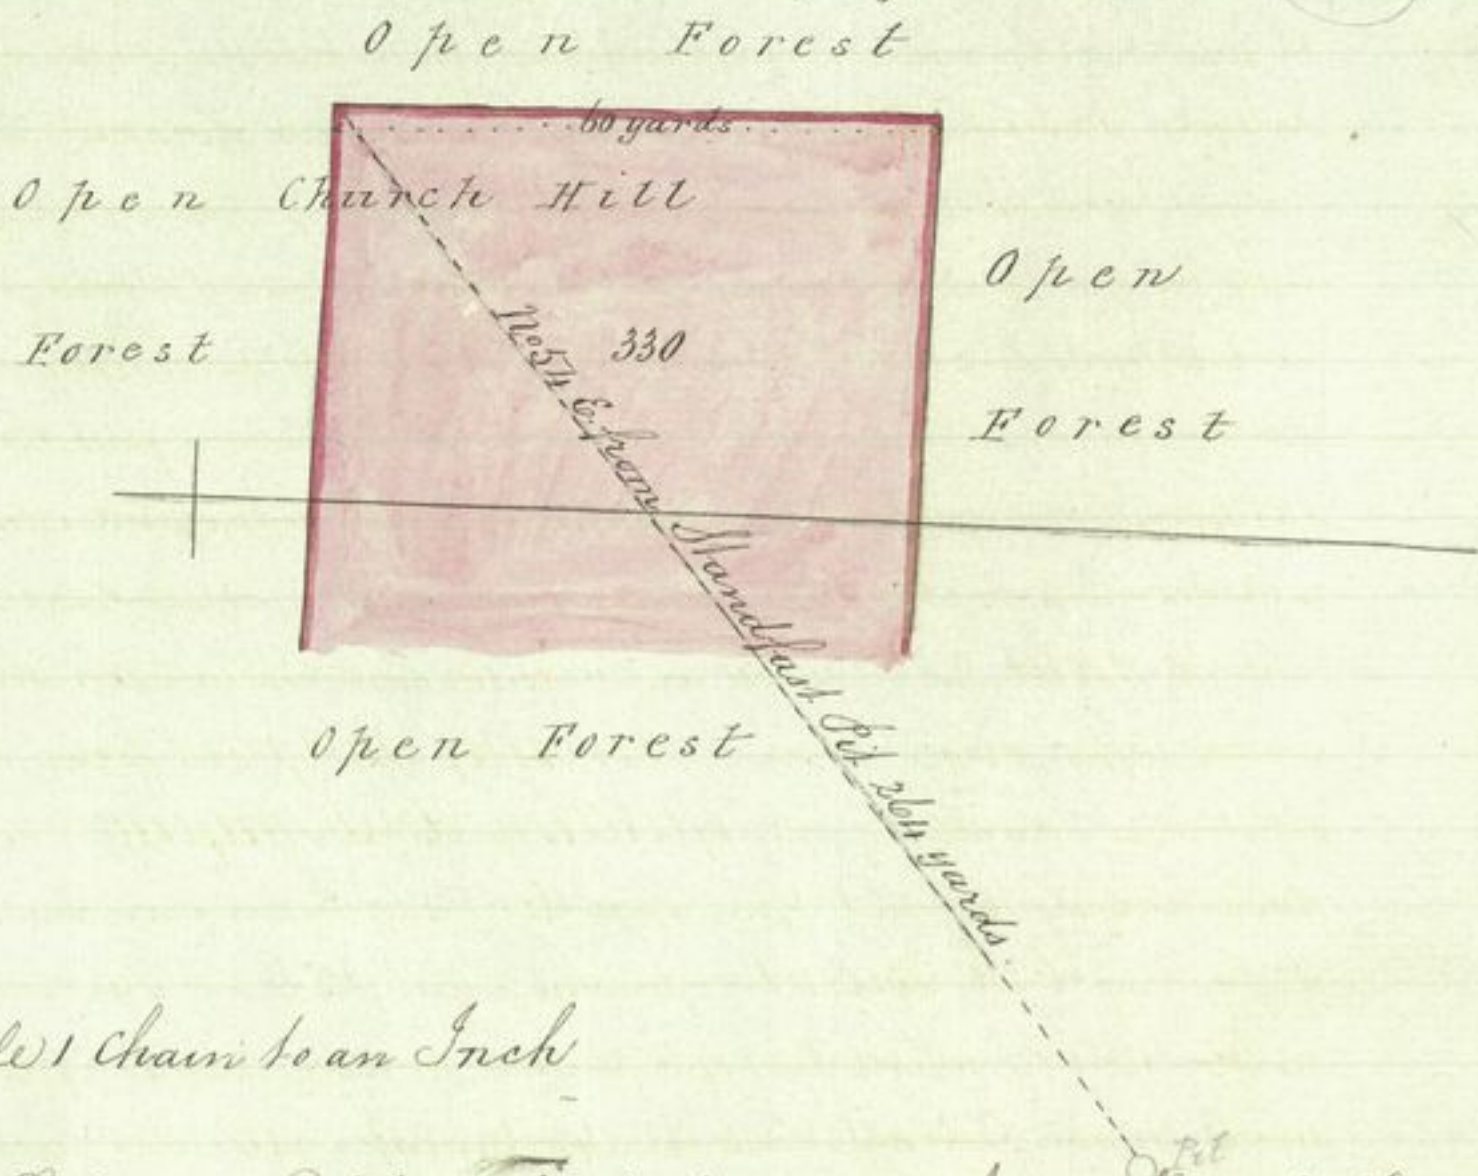 Open Forest
60 yards
Open Church Hill
Open
Forest
330
Forest
No 54 E. from Standfast Pit 264 yards.
Open Forest
le 1 Chain to an Inch
Pit